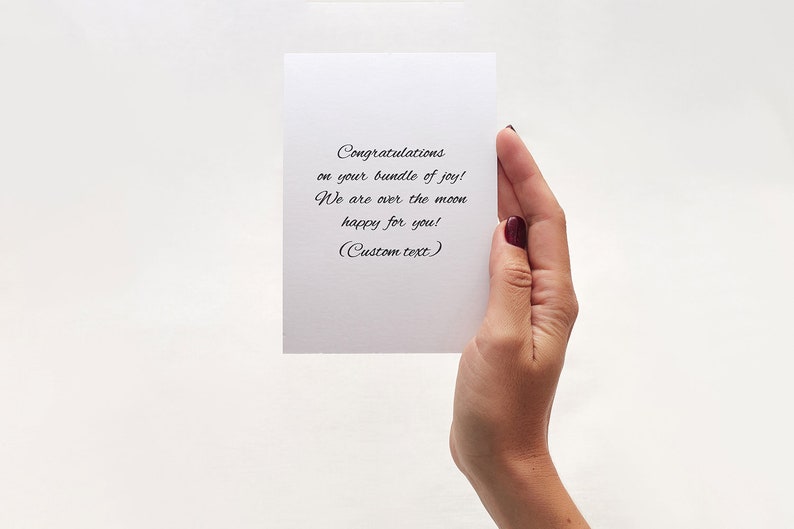 Congratulations
on your bundle of joy!
We are over the moon
happy for you!
(Custom text)